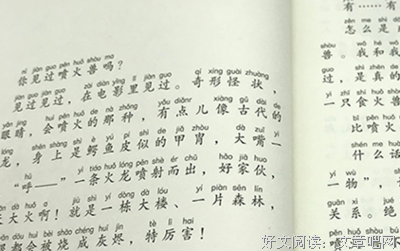 nǐ jiàn guo pēn huǒ shòu ma
你见过喷火兽吗？
jiàn guo jiàn guo zài diàn yǐng lǐ jiàn guo qí xíng guài zhuàng
见过见过，在电影里见过。奇形怪状，
yǎn jing huì pēn huǒ de nà zhǒng yǒu diǎnr xiàng gǔ dài de
眼睛，会喷火的那种，有点儿像古代的
龙，身上是鳄鱼皮似的甲胄，大嘴一
yì tiáo huǒ lóng pēn shè ér chū hǎo jiā huo
“呼——”一条火龙喷射而出，好家伙，
天大火啊！就是一栋大楼、一片森林，
都被烧成灰烬，特厉害！
有……有
zěn me shì
怎么是
兽。我和我
过，是真的
yì zhī shí huǒ shòu
一只食火兽
bǐ pēn huǒ
比喷火
shén me huà
什么话
yí wù
一物”，
关系。绝
好文阅读：文章唱网